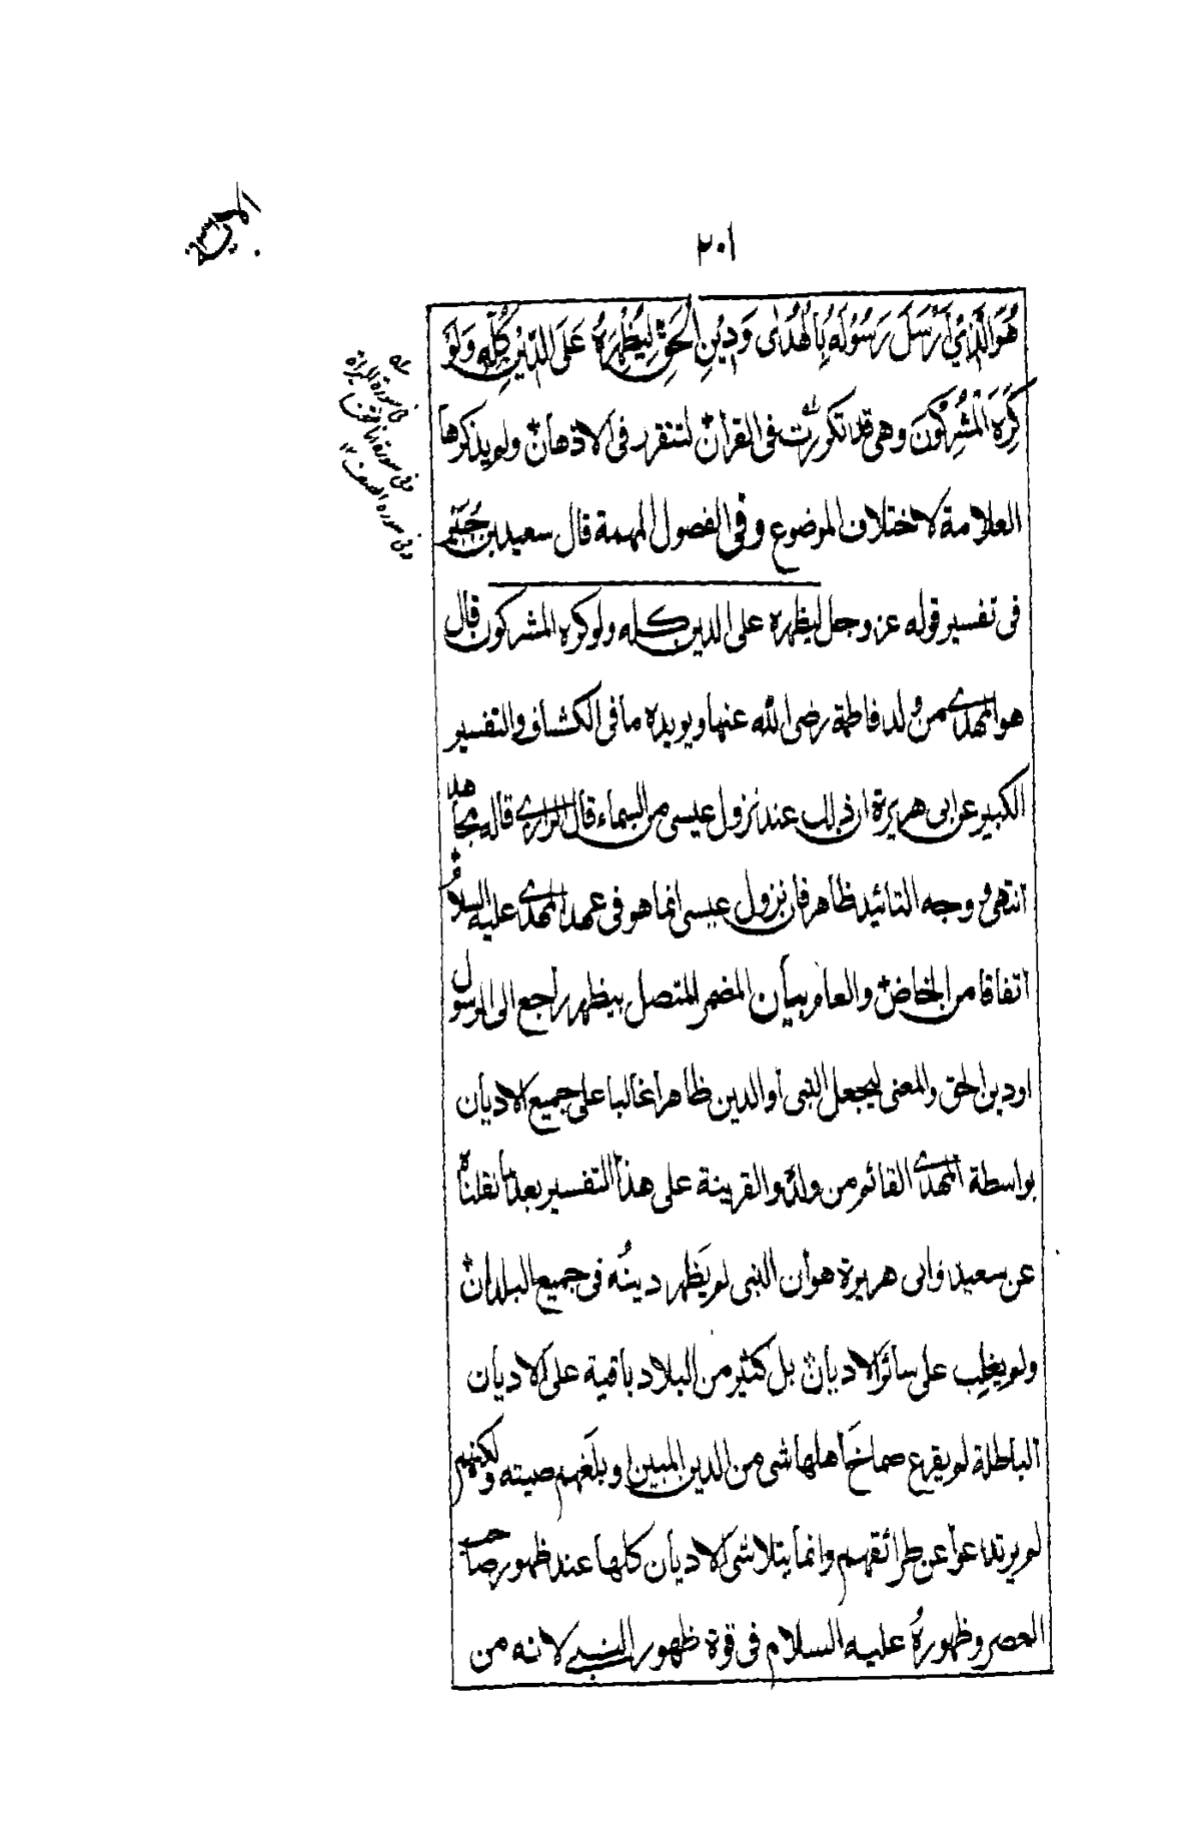 ٢٠١
هُوَ الَّذِيْ اَرْسَلَ رَسُوْلَهٗ بِالْهُدٰى وَدِيْنِ الْحَقِّ لِيُظْهِرَهٗ عَلَى الدِّيْنِ كُلِّهٖ وَلَوْ
كَرِهَ الْمُشْرِكُوْنَ وهى قد تكررت فى القران لتتقرر فى الاذهان ولم يذكرها
العلامة لاختلاف الموضوع وفى الفصول المهمة قال سعيد بن جبير
فى تفسير قوله عز وجل ليظهره على الدين كله ولو كره المشركون قال
هو المهدى من ولد فاطمة رضى الله عنها ويويده ما فى الكشاف والتفسير
الكبير عن ابى هريرة ان ذلك عند نزول عيسى من السماء قال الرازى قاله مجاهد
انتهى و وجه التائيد ظاهر فان نزول عيسى انما هو فى عهد المهدى عليه السلام
اتفاقا من الخاص والعام بيان المضمر المتصل بيظهر راجع الى الرسول
او دين الحق والمعنى ليجعل النبى او الدين ظاهرا غالبا على جميع الاديان
بواسطة المهدى القائم من ولده والقرينة على هذا التفسير بعد ما نقلناه
عن سعيد وابى هريرة هو ان النبى لم يظهر دينُه فى جميع البلدان
ولم يغلب على سائر الاديان بل كثير من البلاد باقية على الاديان
الباطلة لم يقرع صماخ اهلها شى من الدين المبين او بلغهم صيته ولكنهم
لم يرتدعوا عن طرائقهم وانما يتلاشى الاديان كلها عند ظهور صاحب
العصر وظهورهُ عليه السلام فى قوة ظهور النبى لانه من
فى سورة البراة
وفى سورة انا فتحنا
وفى سورة الصف ١٢